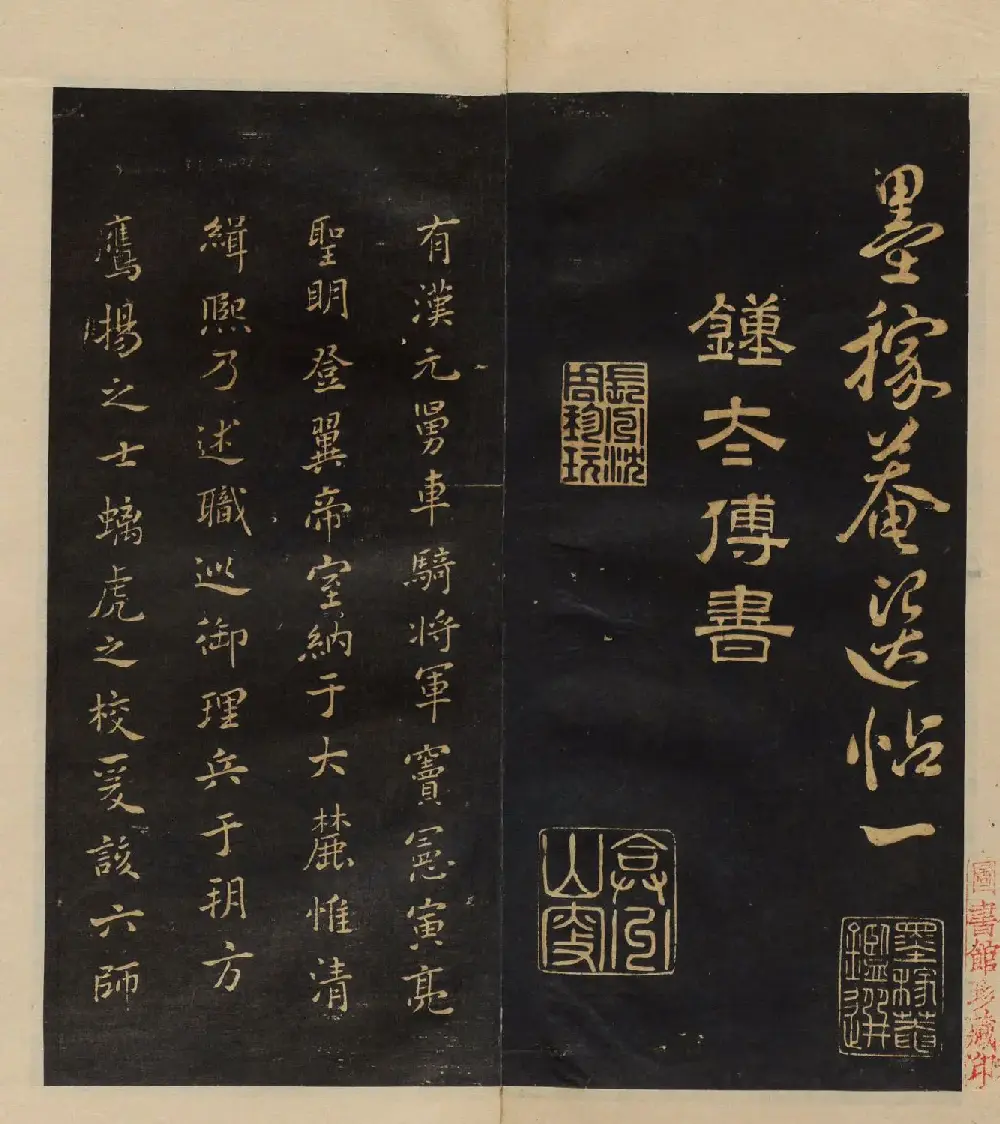 墨稼菴選帖一
墨稼菴鑑選
鍾太傅書
圖書館珍藏印
有漢元舅車騎将軍竇憲寅亮
聖明登翼帝室納于大麓惟清
緝熙乃述職巡御理兵于朔方
鷹揚之士螭虎之校爰該六師